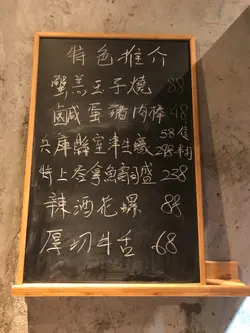 特色推介
蟹羔玉子燒 88
鹹蛋豬肉棒 48
58隻
兵庫縣室津牛蠔 298半打
特上吞拿魚刺盛 238
辣酒花螺 88
厚切牛舌 68